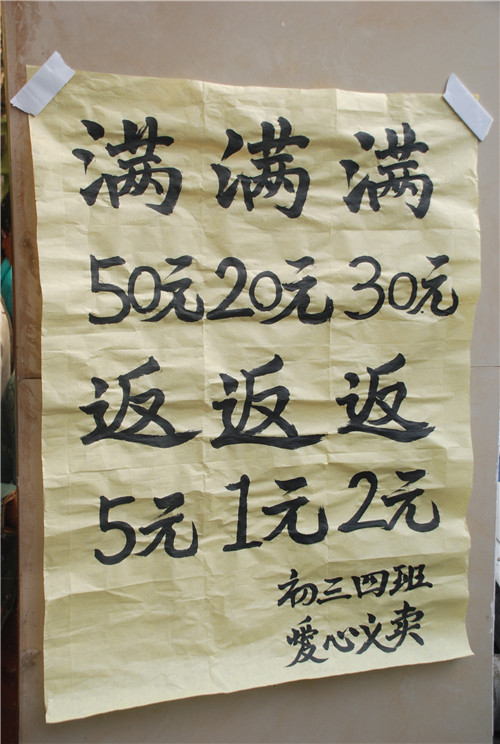 满 满 满
50元 20元 30元
返 返 返
5元 1元 2元
初三四班
爱心义卖